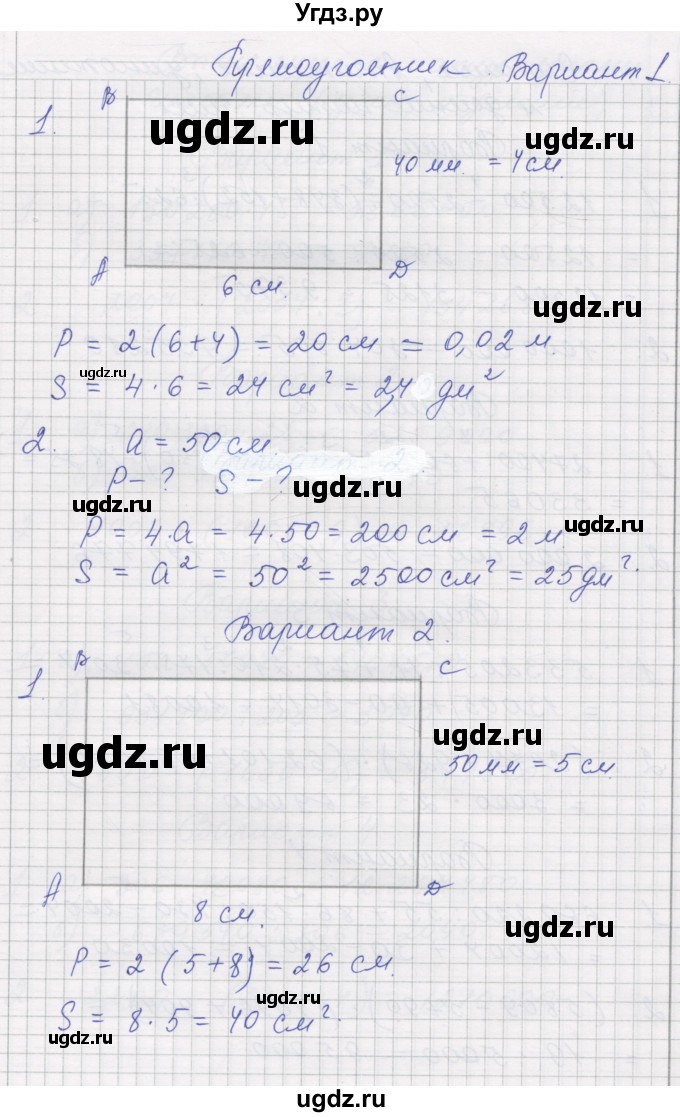 Угдз.ру
Прямоугольник. Вариант 1.
1.
B
C
ugdz.ru
ugdz.ru
40 мм. = 4 см.
A
D
6 см.
ugdz.ru
P = 2(6+4) = 20 см = 0,02 м.
ugdz.ru
S = 4·6 = 24 см² = 2,4 дм²
ugdz.ru
2. a = 50 см.
P - ? S - ?
ugdz.ru
ugdz.ru
P = 4·a = 4·50 = 200 см = 2 м
ugdz.ru
S = a² = 50² = 2500 см² = 25 дм².
ugdz.ru
Вариант 2.
1.
B
C
ugdz.ru
ugdz.ru
50 мм = 5 см.
A
D
8 см.
ugdz.ru
P = 2 (5+8) = 26 см.
ugdz.ru
S = 8·5 = 40 см².
ugdz.ru
ugdz.ru
Угдз.ру